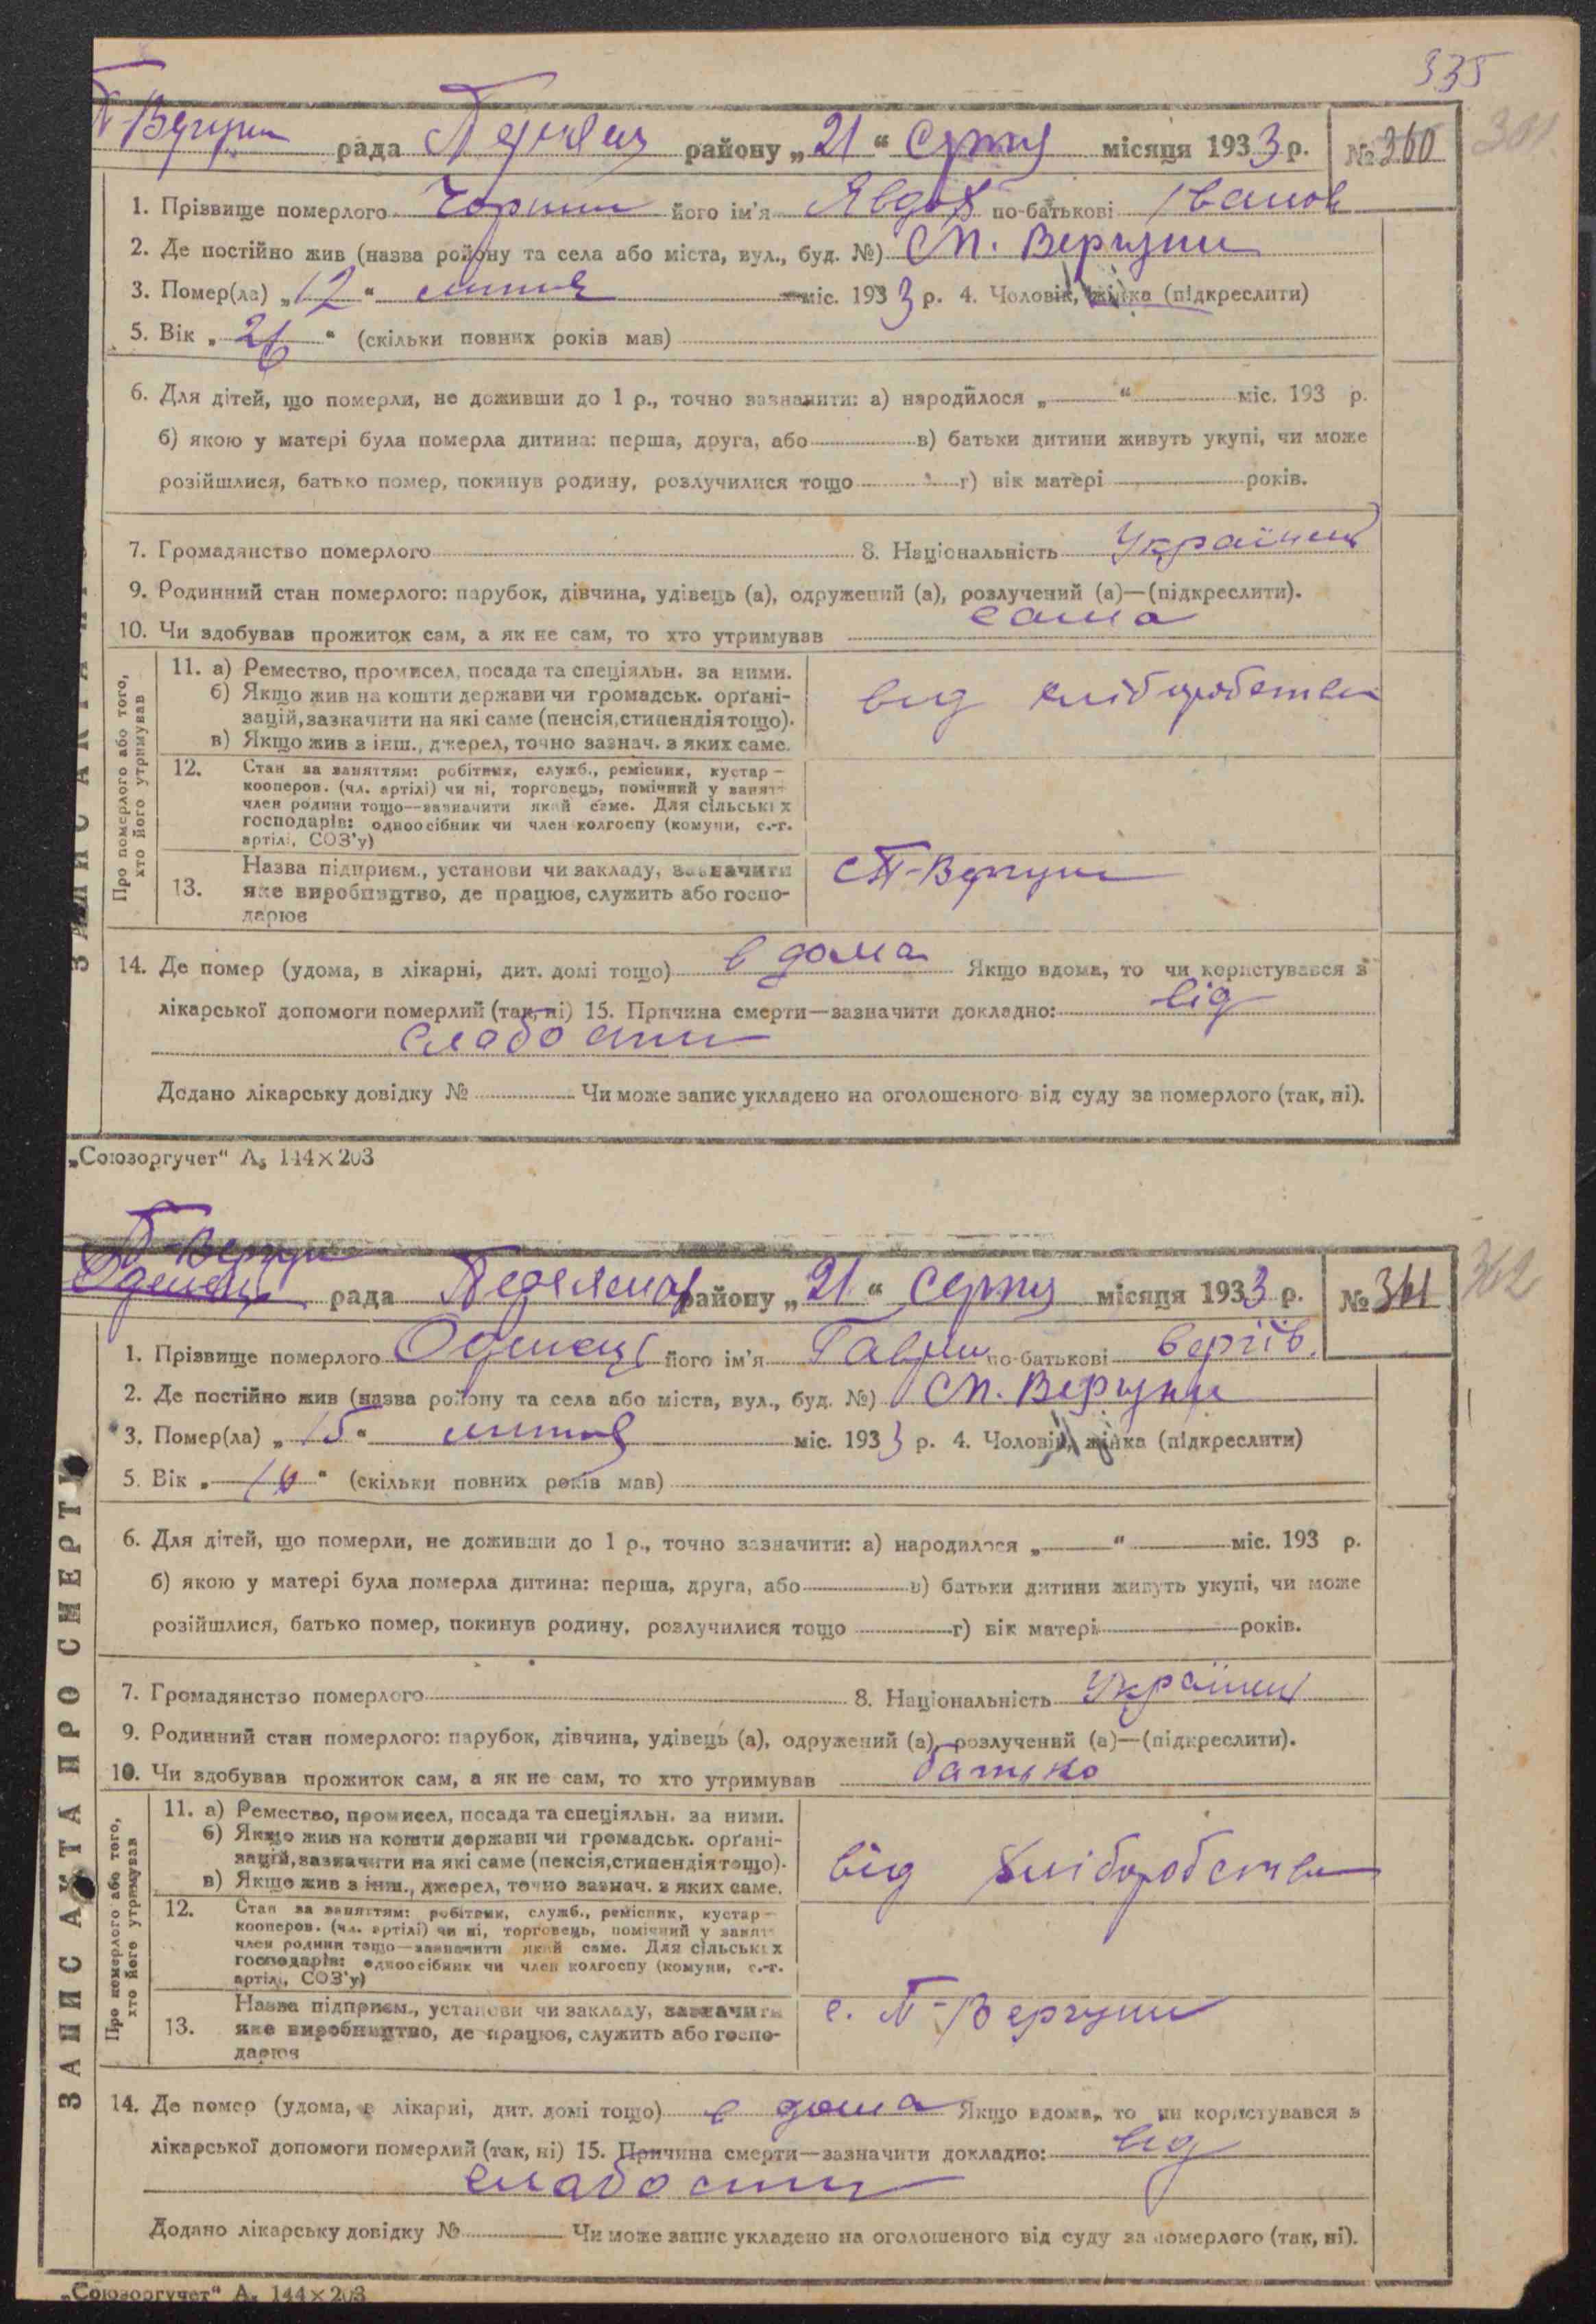 335
П-Вергуни рада Переясл району „21“ Серпня місяця 1933 р. № 360
1. Прізвище померлого Чорний його ім'я Явдох по-батькові Іванов
2. Де постійно жив (назва району та села або міста, вул., буд. №) СП. Вергуни
3. Помер(ла) „12“ липня міс. 1933 р. 4. Чоловік, жінка (підкреслити)
5. Вік „26“ (скільки повних років мав)
6. Для дітей, що померли, не доживши до 1 р., точно зазначити: а) народилося „ “ міс. 193 р.
б) якою у матері була померла дитина: перша, друга, або в) батьки дитини живуть укупі, чи може
розійшлися, батько помер, покинув родину, розлучилися тощо г) вік матері років.
7. Громадянство померлого 8. Національність Українец
9. Родинний стан померлого: парубок, дівчина, удівець (а), одружений (а), розлучений (а)—(підкреслити).
10. Чи здобував прожиток сам, а як не сам, то хто утримував сама
ЗАПИС АКТА
Про померлого або того, хто його утримував
11. а) Ремество, промисел, посада та спеціяльн. за ними.
б) Якщо жив на кошти держави чи громадськ. орґані-
зацій, зазначити на які саме (пенсія, стипендія тощо).
в) Якщо жив з інш., джерел, точно зазнач. з яких саме.
від хліборобства
12. Стан за заняттям: робітник, служб., ремісник, кустар —
кооперов. (чл. артілі) чи ні, торговець, помічний у занят
член родини тощо—зазначити який саме. Для сільських
господарів: одноосібник чи член колгоспу (комуни, с.-г.
артілі, СОЗ'у)
13. Назва підприєм., установи чи закладу, зазначити
яке виробництво, де працює, служить або госпо-
дарює
СП-Вергуни
14. Де помер (удома, в лікарні, дит. домі тощо) в дома Якщо вдома, то чи користувався з
лікарської допомоги померлий (так, ні) 15. Причина смерти—зазначити докладно: від
слабости
Додано лікарську довідку № Чи може запис укладено на оголошеного від суду за померлого (так, ні).
„Союзоргучет“ А₅ 144×203
П-Вергуни
Одинец рада Переяслав району „21“ Серпня місяця 1933 р. № 361
362
1. Прізвище померлого Одинец його ім'я Гаври по-батькові Сергіїв.
2. Де постійно жив (назва району та села або міста, вул., буд. №) СП. Вергуни
3. Помер(ла) „15“ липня міс. 1933 р. 4. Чоловік, жінка (підкреслити)
5. Вік „ “ (скільки повних років мав)
6. Для дітей, що померли, не доживши до 1 р., точно зазначити: а) народилося „ “ міс. 193 р.
б) якою у матері була померла дитина: перша, друга, або в) батьки дитини живуть укупі, чи може
розійшлися, батько помер, покинув родину, розлучилися тощо г) вік матері років.
7. Громадянство померлого 8. Національність Українец
9. Родинний стан померлого: парубок, дівчина, удівець (а), одружений (а), розлучений (а)—(підкреслити).
10. Чи здобував прожиток сам, а як не сам, то хто утримував батько
ЗАПИС АКТА ПРО СМЕРТЬ
Про померлого або того, хто його утримував
11. а) Ремество, промисел, посада та спеціяльн. за ними.
б) Якщо жив на кошти держави чи громадськ. орґані-
зацій, зазначити на які саме (пенсія, стипендія тощо).
в) Якщо жив з інш., джерел, точно зазнач. з яких саме.
від хліборобства
12. Стан за заняттям: робітник, служб., ремісник, кустар —
кооперов. (чл. артілі) чи ні, торговець, помічний у занят
член родини тощо—зазначити який саме. Для сільських
господарів: одноосібник чи член колгоспу (комуни, с.-г.
артілі, СОЗ'у)
13. Назва підприєм., установи чи закладу, зазначити
яке виробництво, де працює, служить або госпо-
дарює
с. П-Вергуни
14. Де помер (удома, в лікарні, дит. домі тощо) в дома Якщо вдома, то чи користувався з
лікарської допомоги померлий (так, ні) 15. Причина смерти—зазначити докладно: від
слабости
Додано лікарську довідку № Чи може запис укладено на оголошеного від суду за померлого (так, ні).
„Союзоргучет“ А₅ 144×203